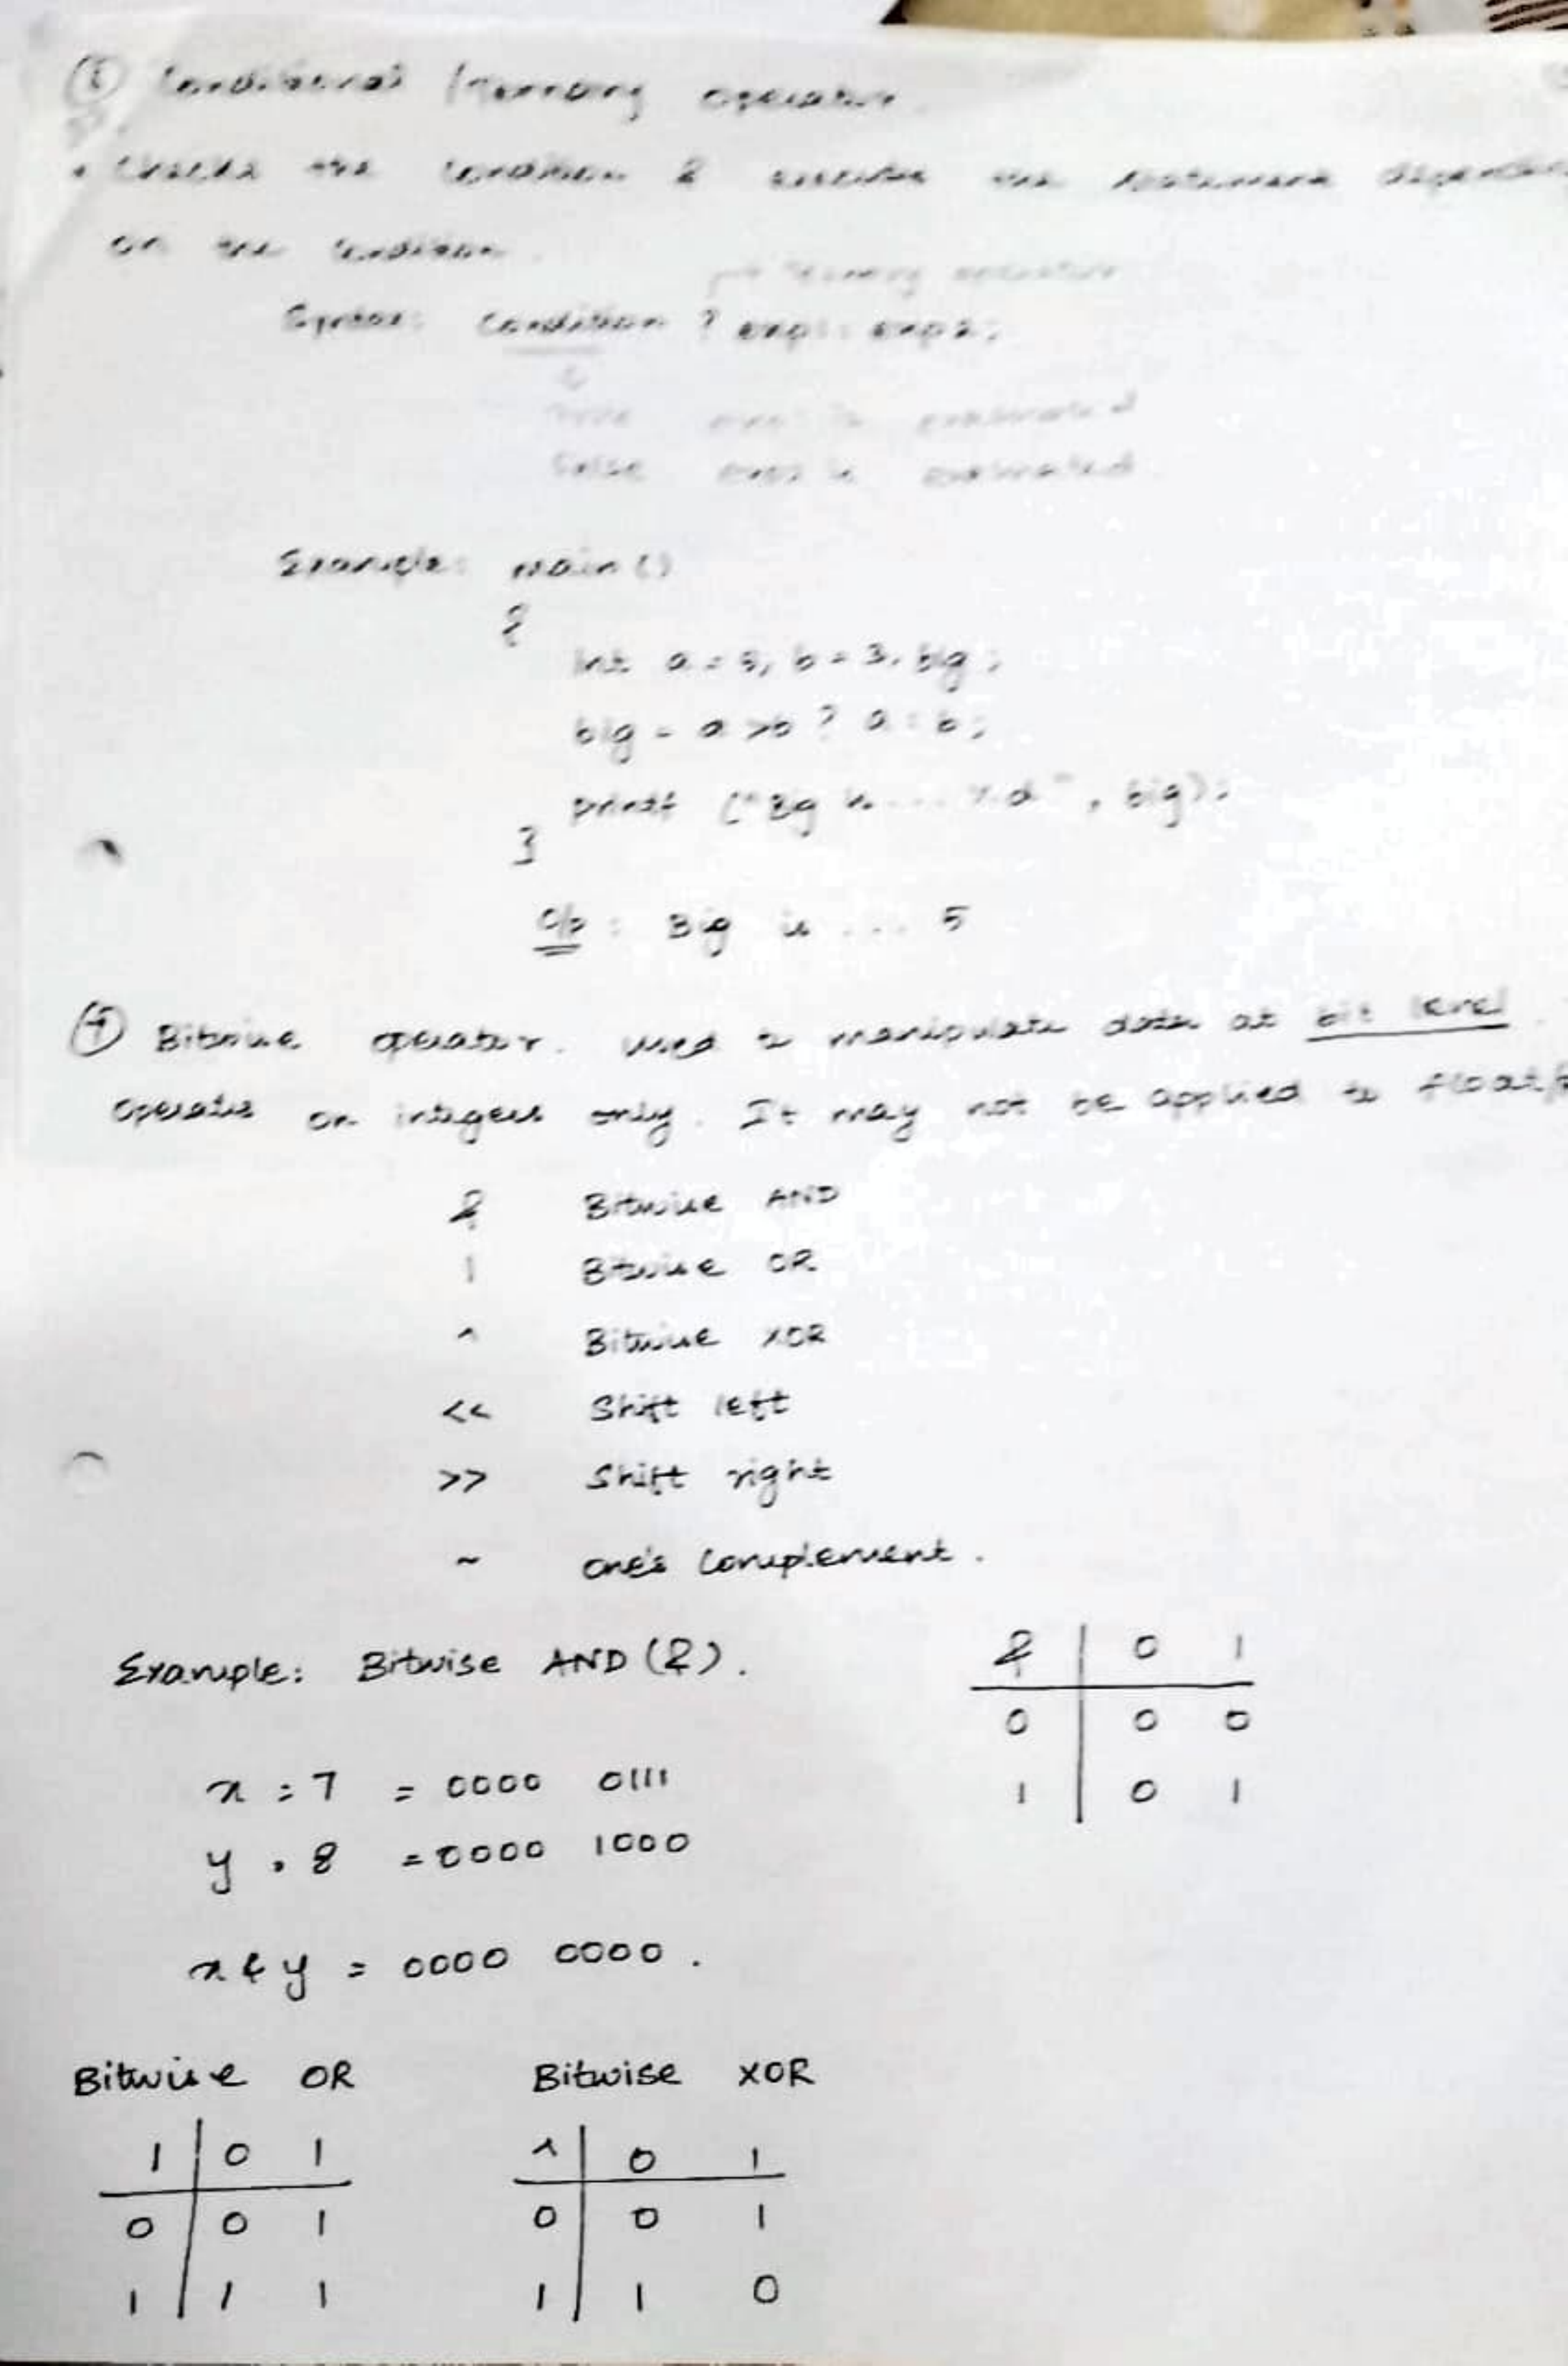 Conditional / Ternary operator.
• Checks the condition & executes the statement depending
on the condition.
→ Ternary operator
Syntax: Condition ? exp1 : exp2;
True exp1 is evaluated
False exp2 is evaluated
Example: main()
{
int a = 5, b = 3, big;
big = a >b ? a : b;
printf ("Big is... %d", big);
}
O/p : Big is ... 5
⑦ Bitwise operator. Used to manipulate data at bit level.
Operates on integers only. It may not be applied to float/
& Bitwise AND
| Bitwise OR
^ Bitwise XOR
<< Shift left
>> Shift right
~ one's complement.
Example: Bitwise AND (&).
& 0 1
0 0 0
1 0 1
x = 7 = 0000 0111
y = 8 = 0000 1000
x & y = 0000 0000.
Bitwise OR Bitwise XOR
| 0 1 ^ 0 1
0 0 1 0 0 1
1 1 1 1 1 0